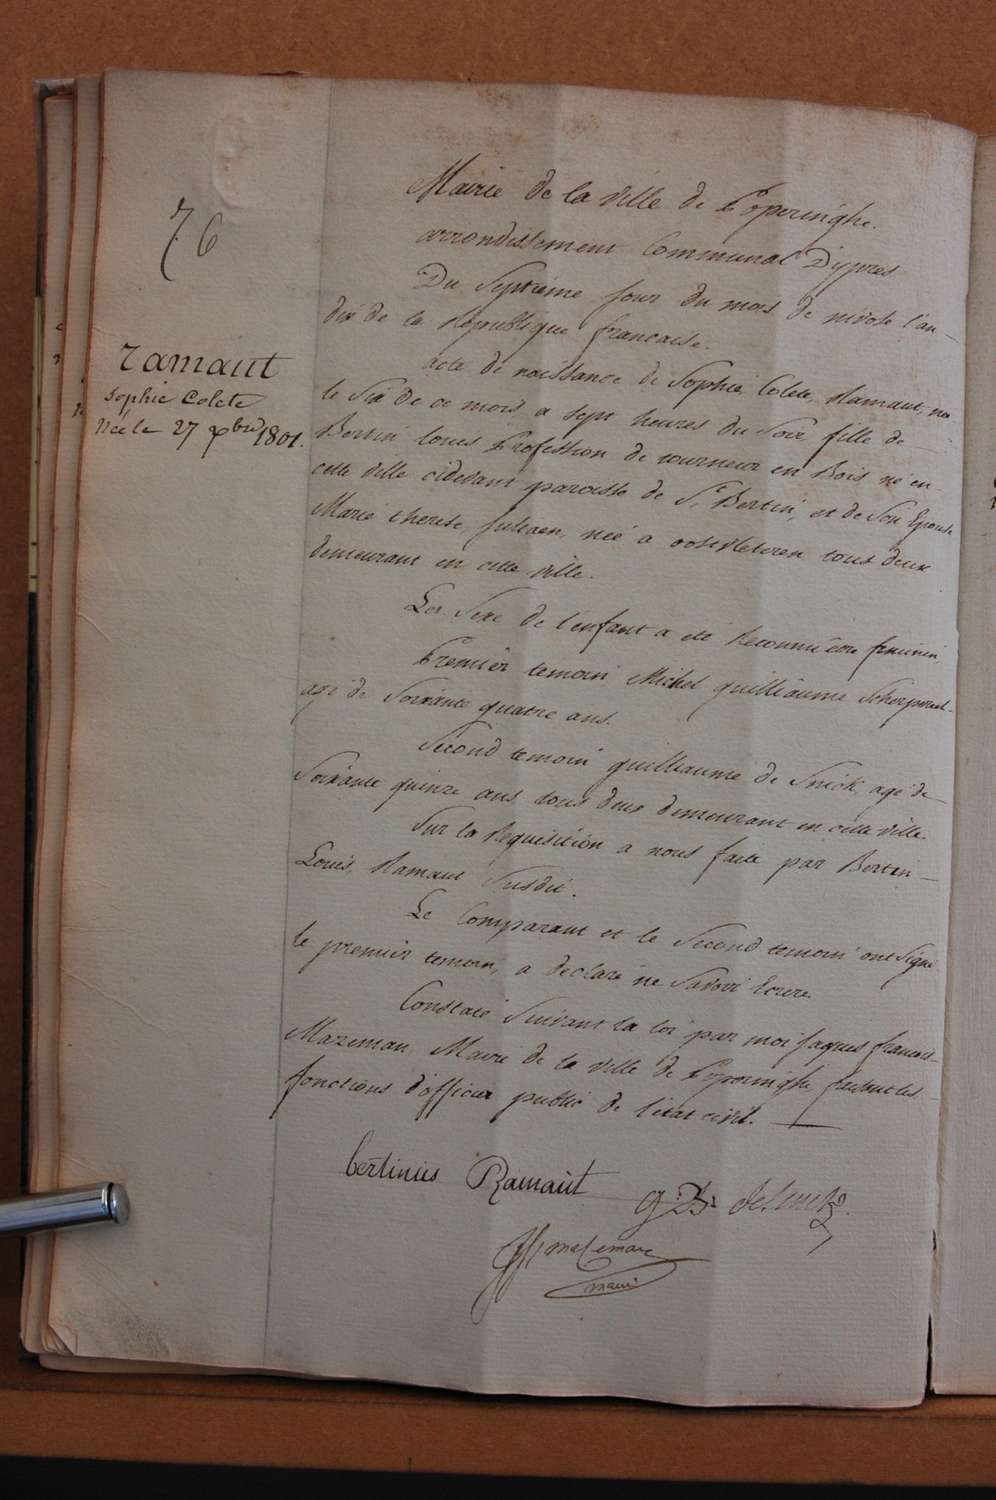 76
ramaut
Sophie Colete
Née le 27 xbre 1801.
Mairie de la ville de Poperinghe.
arrondissement Communal D'ypres
Du Septieme jour du mois de nivose l'an
dix de la Republique francaise.
acte de naissance de Sophie Colete Ramaut, née
le Six de ce mois a sept heures du Soir, fille de
Bertin Louis Profession de tourneur en Bois né en
cette ville cidevant paroisse de St. Bertin, et de Son Epouse
Marie therese Juliaen, née a oostvleteren tous deux
demeurant en cette ville.
Le Sexe de l'enfant a eté Reconnu être feminin
Premier temoin Michel guilliaume
agé de Soixante quatre ans.
Second temoin guilliaume de Snick, agé de
Soixante quinze ans, tous deux demeurant en cette ville.
Sur la Requisition a nous faite par Bertin
Louis Ramaut Susdit.
Le Comparant et le Second temoin ont Signé
le premier temoin, a declaré ne Savoir Ecrire
Constaté Suivant la loi par moi Jaques francois
Mazeman, Maire de la ville de Poperinghe faisant les
fonctions d'officier public de l'etat civil.
bertinus Ramaut
g: B: deSnick
Mazeman
maire